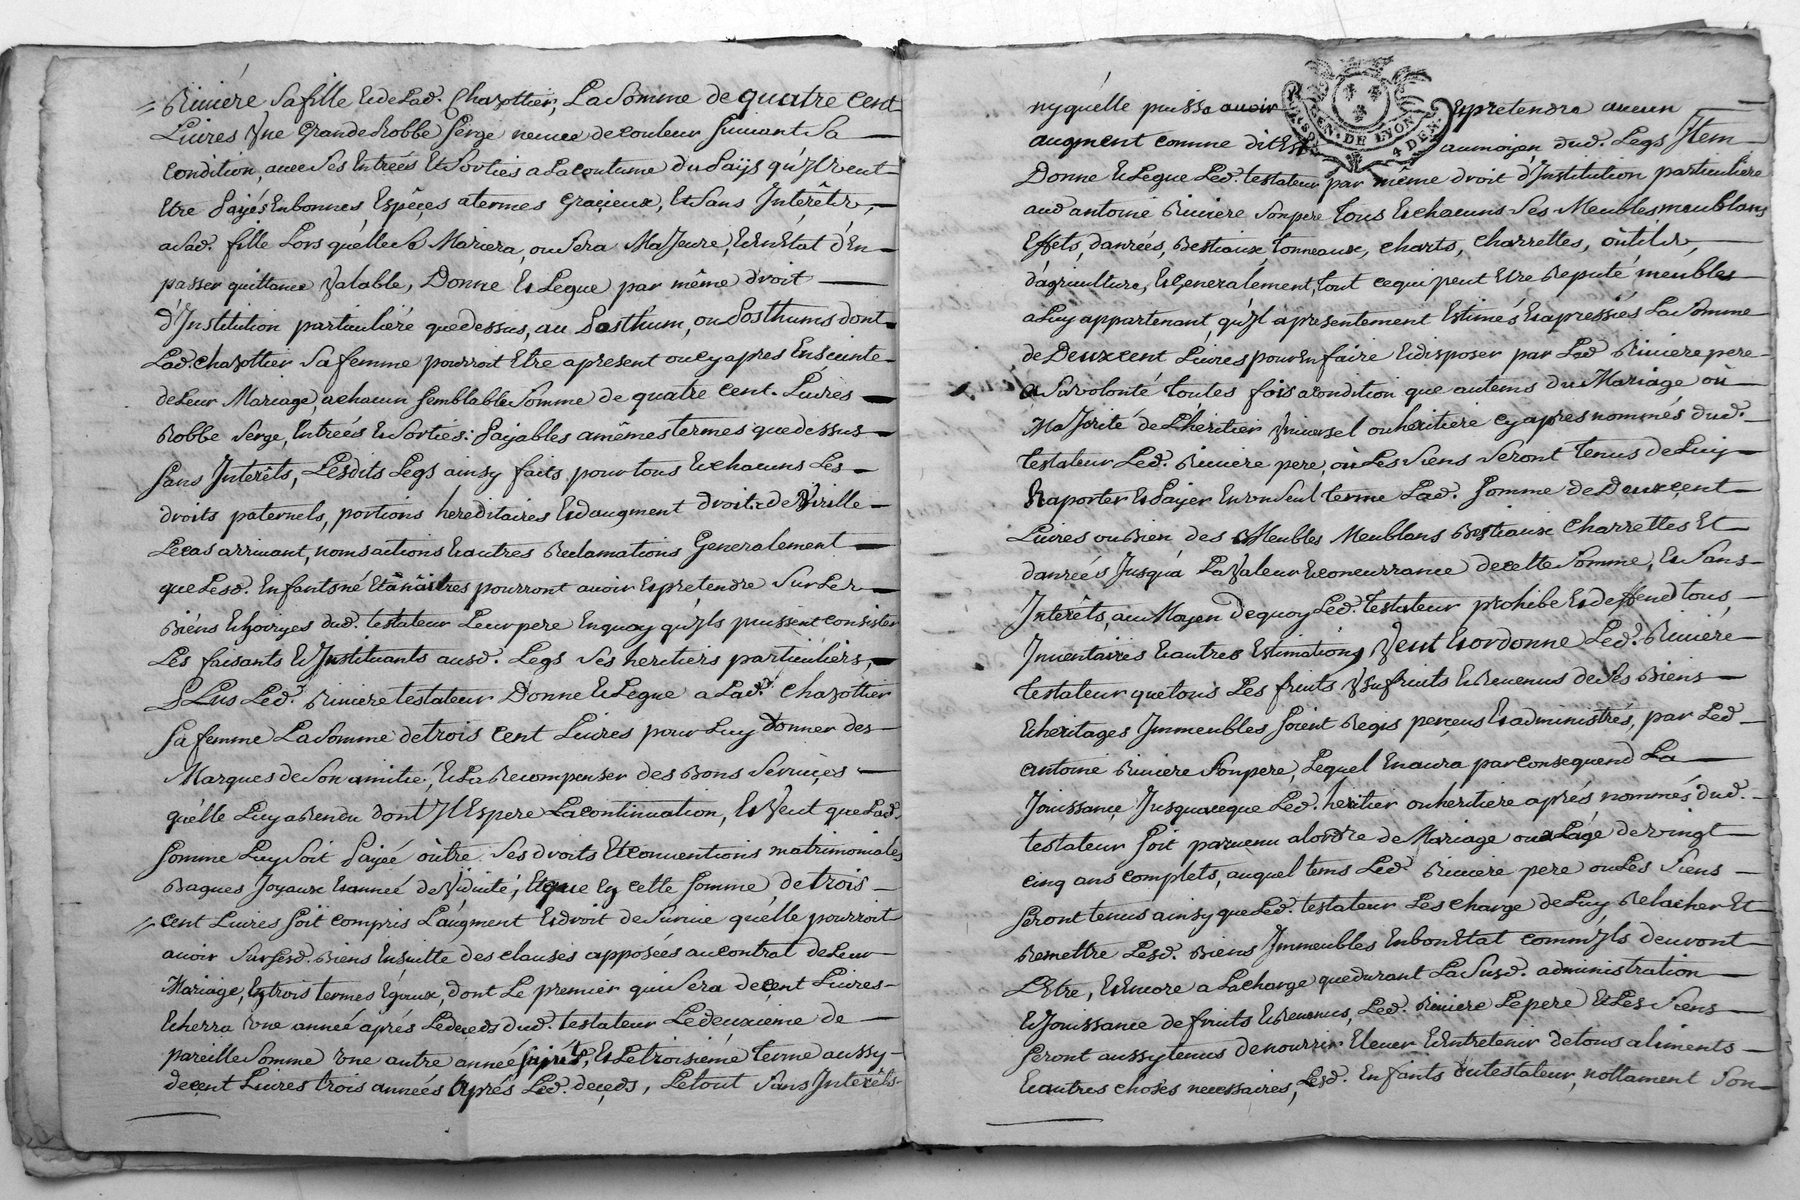 Riviére Sa fille Et de Lad. Chazottier, La Somme de quatre cent
Livres Vne Grande Robbe Serge neuve de couleur Suivant Sa
Condition, avec Ses Entrées Et Sorties a La coutume Du Païs qu'Jl veut
Etre Païés En bonnes Espêces a termes Gracieux, Et Sans Intérêts,
a Sad. fille Lors qu'elle Se Mariera, ou Sera Majeure, Et En Etat d'En
passer quittance Valable, Donne Et Legue par même droit
d'Institution particuliére que dessus, au Posthum, ou Posthums dont
Lad. Chazottier Sa femme pourroit Etre a present ou cy apres Enceinte
de Leur Mariage, a chacun Semblable Somme de quatre cent Livres
Robbe Serge, Entrées Et Sorties; Païables a mêmes termes que dessus
Sans Interêts, Lesdits Legs ainsy faits pour tous Et chacuns Les
droits paternels, portions hereditaires Et d'augment droit de Virille
Le cas arrivant, noms actions Et autres Reclamations Generalement
que Lesd. Enfants né Et à nâitres pourront avoir Et pretendre Sur Les
Biéns Et hoiryes dud. testateur Leur pere En quoy qu'Jls puissent consister
Les faisants Et Jnstituants ausd. Legs Ses heritiers particuliérs,
Plus Led. Riviere testateur Donne Et Legue a Lad. Chazottier
Sa femme La Somme de trois cent Livres pour Luy donner des
Marques de Son amitié, Et La Recompenser des Bons Services
qu'elle Luy a Rendu dont Jl Espere La continuation, Et Veut que Lad.
Somme Luy Soit Païée oùtre Ses droits Et conventions matrimoniales
Bagues Joyaux Et année de Viduité, Et que En cette Somme de trois
cent Livres Soit compris L'augment Et droit de Survie qu'elle pourroit
avoir Sur Lesd. Biens En Suitte des clauses apposées au contrat de Leur
Mariage, En trois termes Egaux, dont Le premier qui Sera de cent Livres
Echerra Vne année aprés Le deceds dud. testateur Le deuxieme de
pareille Somme Vne autre année après, Et Le troisiéme terme aussy
de cent Livres trois années aprés Led. deceds, Le tout Sans Interêts
ny qu'elle puisse avoir Et pretendre aucun
augment comme dit Est au moïen dud. Legs Jtem
Donne Et Legue Led. testateur par même droit d'Institution particuliére
aud antoine Riviere Son pere Tous Et chacuns Ses Meubles meublans
Effets, danrées, Bestiaux, tonneaux, charts, charrettes, oùtils,
d'agriculture, Et Generalement, tout ce qui peut Etre Reputé meubles
a Luy appartenant, qu'Jl a presentement Estimés Et apressiés La Somme
de Deux cent Livres pour En faire Et disposer par Led Riviere pere
a Sa volonté toutes fois a condition que au tems du Mariage où
Majorité de L'heritier Vniversel ou heritiere cy apres nommés dud.
testateur Led. Riviere pere, où Les Siens Seront tenus de Luy
Raporter Et Païer En vn Seul terme Lad. Somme de Deux cent
Livres ou Bien des Meubles Meublans Bestiaux charrettes Et
danreés Jusqu'à La Valeur Et concurrance de cette Somme, Et Sans
Interêts, au Moyen de quoy Led. testateur prohibe Et deffend tous
Inventaires Et autres Estimations, Veut Et ordonne Led. Riviére
testateur que tous Les fruits Vsufruits Et Revenus de Ses Biens
Et heritages Jmmeubles Soient Regis perçeus Et administrés, par Led
antoine Riviere Son pere, Lequel En aura par consequend La
Jouissance Jusqu'a ce que Led. heritier ou heritiere aprés nommés dud.
testateur Soit parvenu a l'ordre de Mariage ou a L'age de vingt
cinq ans complets, auquel tems Led. Riviere pere ou Les Siens
Seront tenus ainsy que Led. testateur Les charge de Luy Relacher Et
Remettre Lesd. Biens Jmmeubles En bon Etat comm'Jls devront
L'Etre, Et Encore a La charge que durant La Susd. administration
Et Jouissance de fruits Et Revenus, Led. Riviere Le pere Et Les Siens
Seront aussy tenus de nourrir Elever Et Entretenir de tous aliments
Et autres choses necessaires, Lesd. Enfants du testateur, nottament Son
GEN. DE LYON
4 DEN.